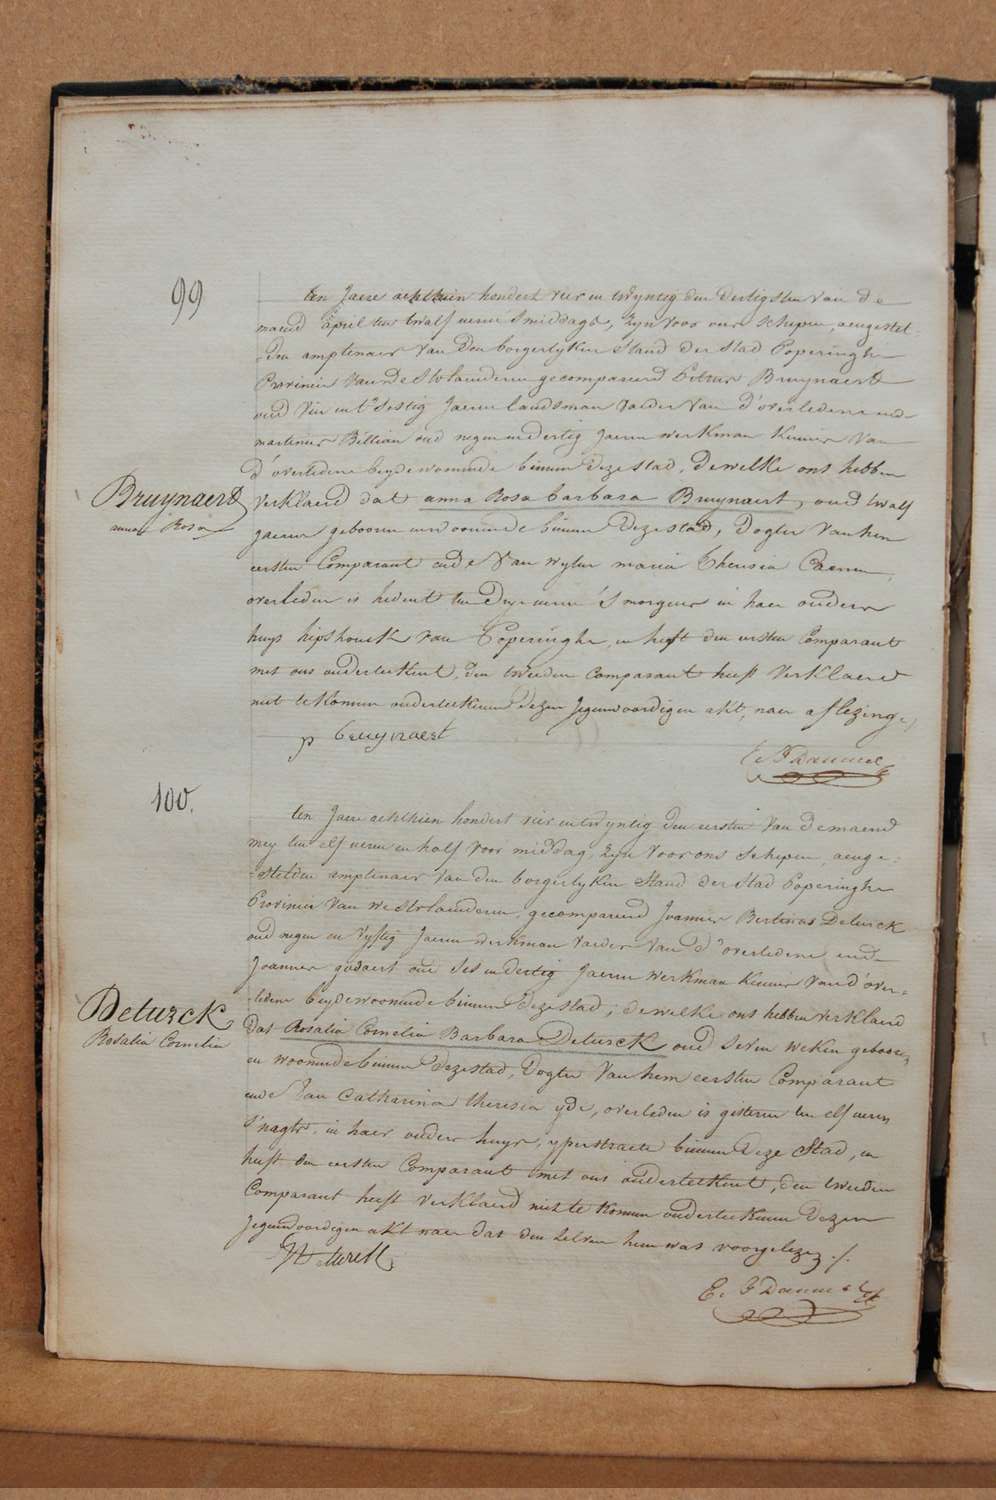 99
ten Jaere achthien hondert vier en twyntig den dertigsten van de
maend april ten twalf uren s'middags, zyn voor ons schepen, aengestel-
-den amptenaer van den borgerlyken Stand der Stad Poperinghe
Provincie van WestVlaenderen gecompareerd Petrus Bruynaert
oud vier en t'Sestig Jaeren landsman vader van d'overledene ende
martinus Billiau oud negen en dertig Jaeren werkman kennis van
d'overledene beyde woonende binnen deze stad, dewelke ons hebben
Bruynaert
anna Rosa
verklaerd dat anna Rosa barbara Bruynaert, oud twalf
jaeren geboren en woonende binnen deze stad, dogter van hem
eersten Comparant ende van wylen maria Theresia
overleden is heden ten dry uren s'morgens in haer ouders
huys hipshoek van Poperinghe, en heeft den eersten Comparant
met ons onderteekent, den tweeden comparant heeft verklaerd
niet te konnen onderteekenen dezen Jegenwoordigen akt, naer aflezing,
p bruynaert
100.
ten Jaere achthien hondert vier en twyntig den eersten van de maend
mey ten elf uren en half voor middag, zyn voor ons schepen, aenge-
-stelden amptenaer van den borgerlyken Stand der Stad Poperinghe
Provincie van westvlaenderen, gecompareerd Joannes Bertinus Deturck
oud negen en vyftig Jaeren werkman vader van d'overledene ende
Joannes godaert oud ses en dertig Jaeren werkman kennis van d'over-
-ledene beyde woonende binnen deze stad, dewelke ons hebben verklaerd
Deturck
Rosalia Cornelia
dat Rosalia Cornelia Barbara Deturck oud seven weken geboore,
en woonende binnen deze stad, dogter van hem eersten Comparant
ende van Catharina theresia yde, overleden is gisteren ten elf uren
s'nagts, in haer ouders huys, yperstraete binnen deze Stad, en
heeft den eersten Comparant met ons onderteekent, den tweeden
Comparant heeft verklaerd niet te konnen onderteekenen dezen
Jegenwoordigen akt naer dat den zelven hem was voorgelezen ./.